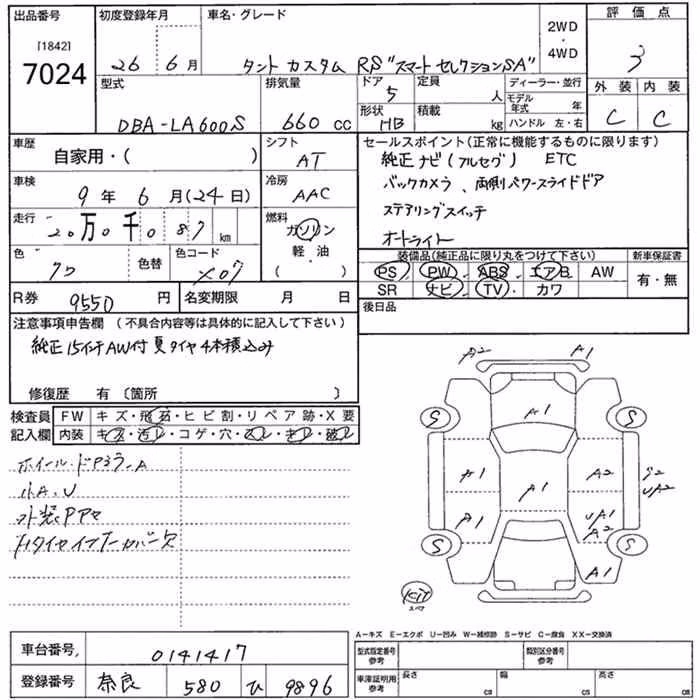 出品番号 初度登録年月 車名・グレード 2WD ・ 4WD 評価点
[1842]
7024 26 6月 タント カスタム RS"スマートセレクションSA" 3
型式 排気量 ドア 5 定員 人 ディーラー・並行 外装 内装
モデル年式 年
DBA-LA600S 660 CC 形状 HB 積載 kg ハンドル 左・右 C C
車歴 自家用・( ) シフト AT セールスポイント(正常に機能するものに限ります)
純正ナビ(フルセグ) ETC
車検 9年 6月(24日) 冷房 AAC バックカメラ、両側パワースライドドア
走行 20万0千087 km 燃料 ガソリン 軽・油 ( ) ステアリングスイッチ
オートライト
色 色替 色コード X07 装備品(純正品に限り丸をつけて下さい) 新車保証書
PS PW ABS エアB AW 有・無
R券 9550円 名変期限 月 日 SR ナビ TV カワ
注意事項申告欄 (不具合内容等は具体的に記入して下さい) 後日品
純正15インチAW付夏タイヤ4本積込み
修復歴 有〔箇所 〕
検査員 FW キズ・飛石・ヒビ割・リペア跡・X要
記入欄 内装 キズ・汚レ・コゲ・穴・スレ・キレ・破レ
A2 A1
A1
S S
A1 A2 S2
A1 UA2
A1 UA1
A2
S S
A1
Kit
スペア
小A、U
外装PPマ
A-キズ E-エクボ U-凹み W-補修跡 S-サビ C-腐食 XX-交換済
車台番号 0141417 型式指定番号 参考 類別区分番号 参考
登録番号 奈良 580 ひ 9896 車庫証明用 参考 長さ cm 幅 cm 高さ cm